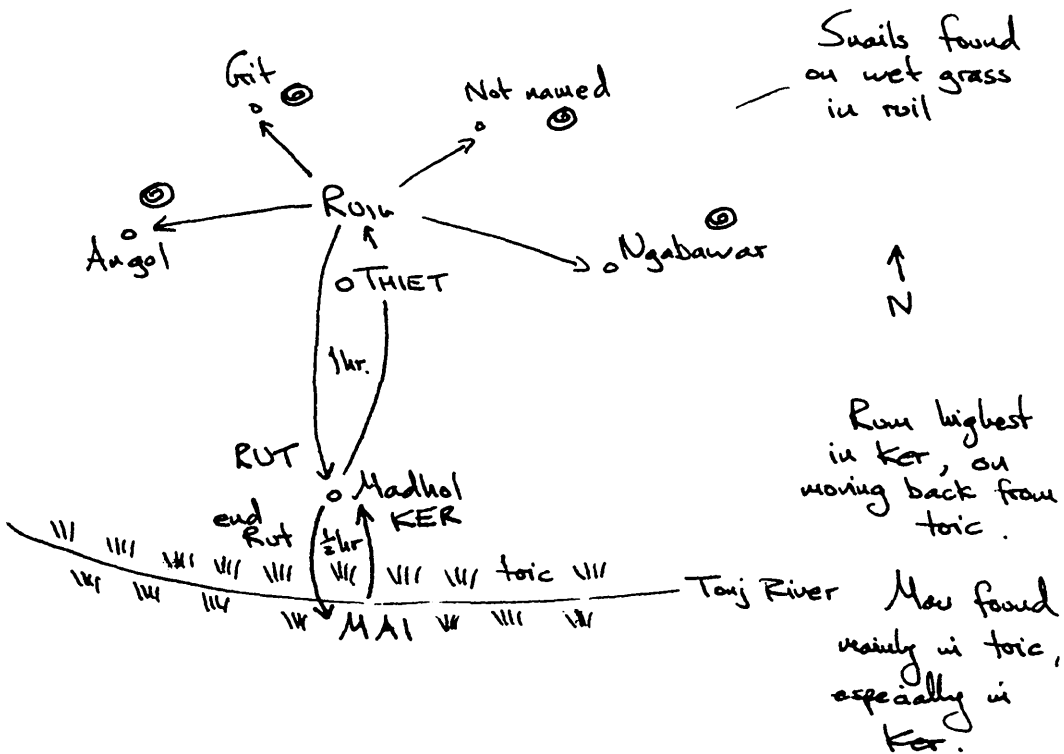 Snails found
on wet grass
in ruil
Git
Not named
Angol
Ngabawar
THIET
N
1hr.
RUT
Madhol
KER
end
Rut
½hr
toic
Tonj River
MAI
highest
in Ker, on
moving back from
toic.
found
mainly in toic,
especially in
Ker.